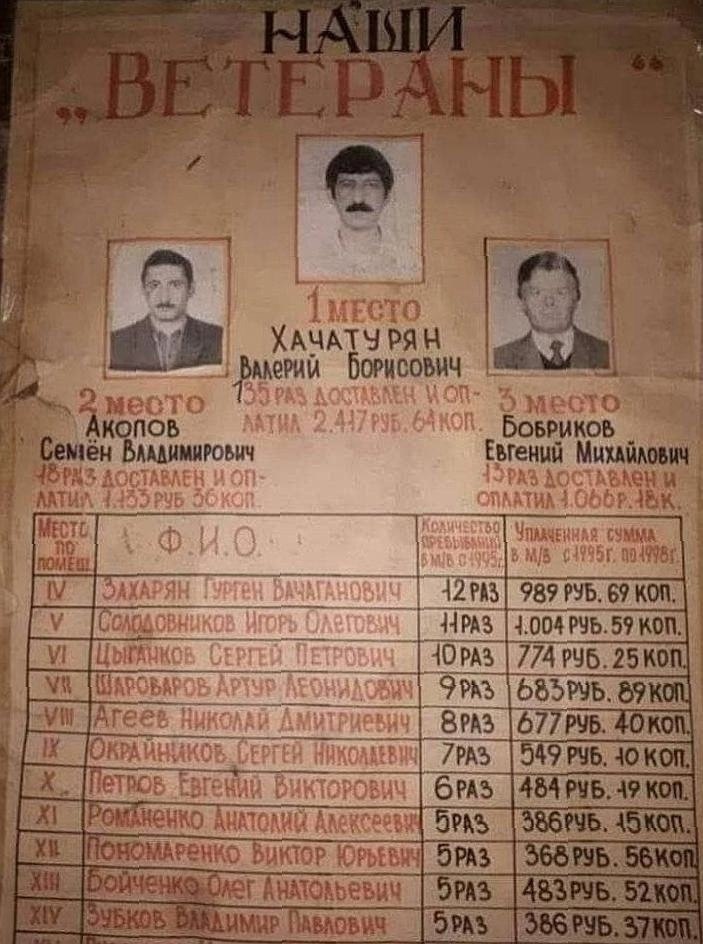 НАШИ
„ВЕТЕРАНЫ“
1 место
Хачатурян
Валерий Борисович
135 раз доставлен и оп-
латил 2.417 руб. 64 коп.
2 место
Акопов
Семён Владимирович
18 раз доставлен и оп-
латил 1.133 руб 36 коп.
3 место
Бобриков
Евгений Михайлович
13 раз доставлен и
оплатил 1.066 р. 18 к.
Место по помещ. Ф.И.О. Количество пребываний в м/в с 1995г. Уплаченная сумма в м/в с 1995г. по 1998г.
IV Захарян Гурген Вачаганович 12 раз 989 руб. 69 коп.
V Солодовников Игорь Олегович 11 раз 1.004 руб. 59 коп.
VI Цыганков Сергей Петрович 10 раз 774 руб. 25 коп.
VII Шароваров Артур Леонидович 9 раз 683 руб. 89 коп.
VIII Агеев Николай Дмитриевич 8 раз 677 руб. 40 коп.
IX Окрайников Сергей Николаевич 7 раз 549 руб. 10 коп.
X Петров Евгений Викторович 6 раз 484 руб. 19 коп.
XI Романенко Анатолий Алексеевич 5 раз 386 руб. 15 коп.
XII Пономаренко Виктор Юрьевич 5 раз 368 руб. 56 коп
XIII Бойченко Олег Анатольевич 5 раз 483 руб. 52 коп.
XIV Зубков Владимир Павлович 5 раз 386 руб. 37 коп.